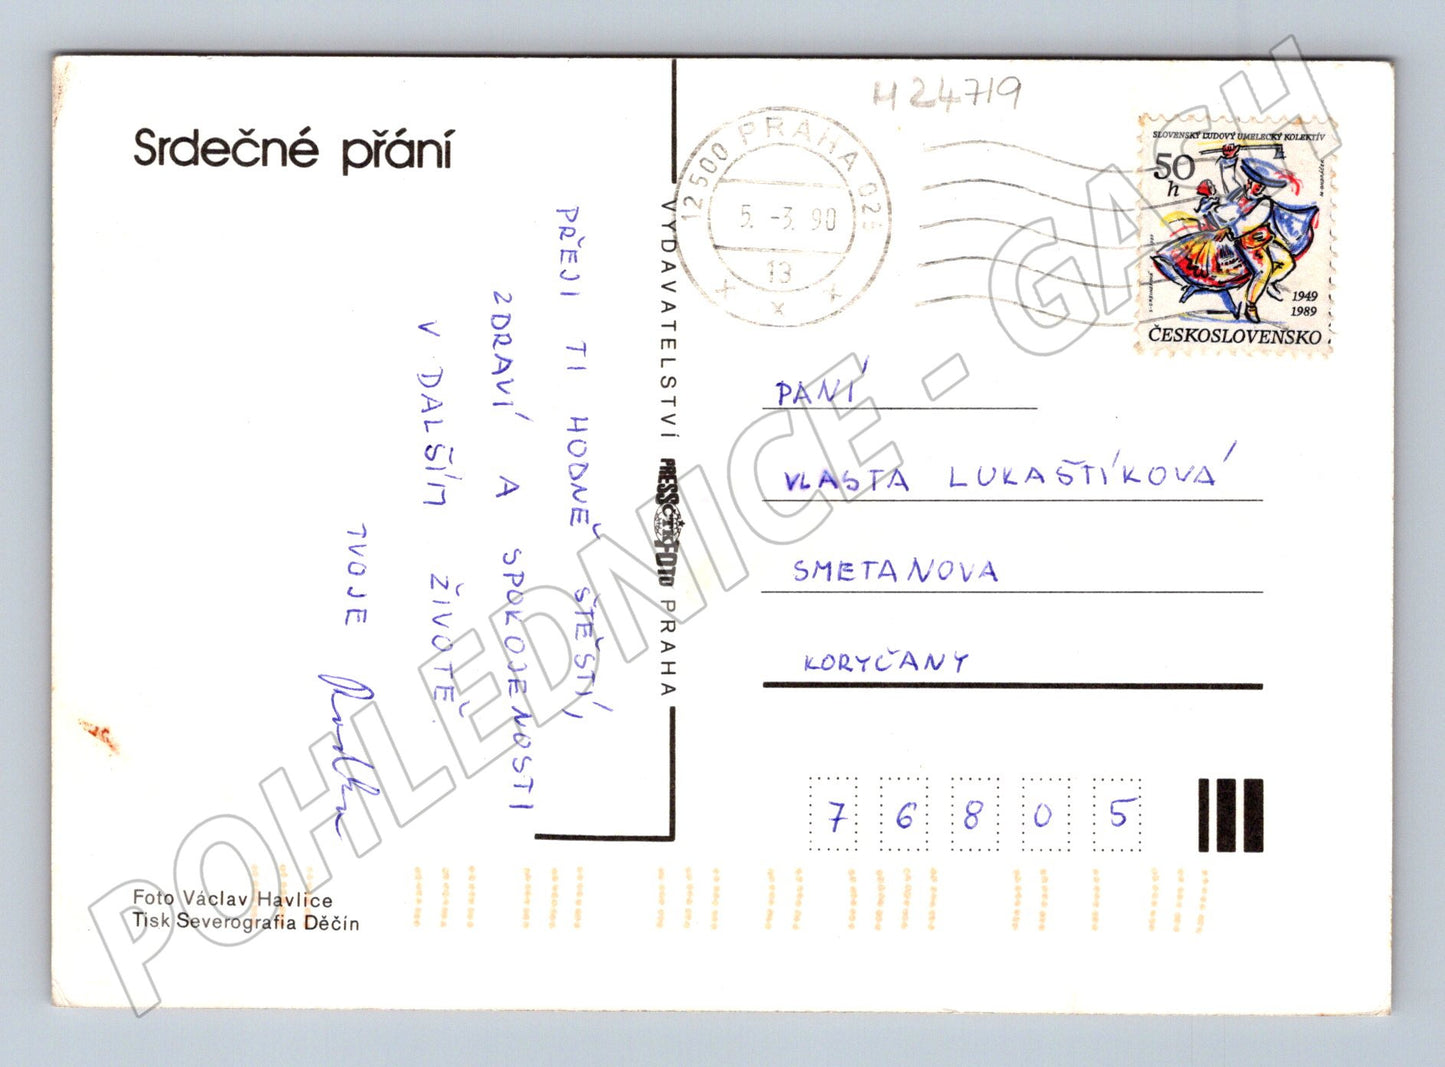 Srdečné přání
PŘEJI TI HODNĚ ŠTĚSTÍ,
ZDRAVÍ A SPOKOJENOSTI
V DALŠÍM ŽIVOTĚ
TVOJE
Foto Václav Havlice
Tisk Severografia Děčín
VYDAVATELSTVÍ PRESSFOTO PRAHA
ČTK
H 24719
12500 PRAHA 02
5. -3. 90
13
SLOVENSKÝ ĽUDOVÝ UMELECKÝ KOLEKTÍV
50
h
1949
1989
ČESKOSLOVENSKO
PANÍ
VLASTA LUKAŠTÍKOVÁ
SMETANOVA
KORYČANY
7 6 8 0 5
POHLEDNICE - GASH